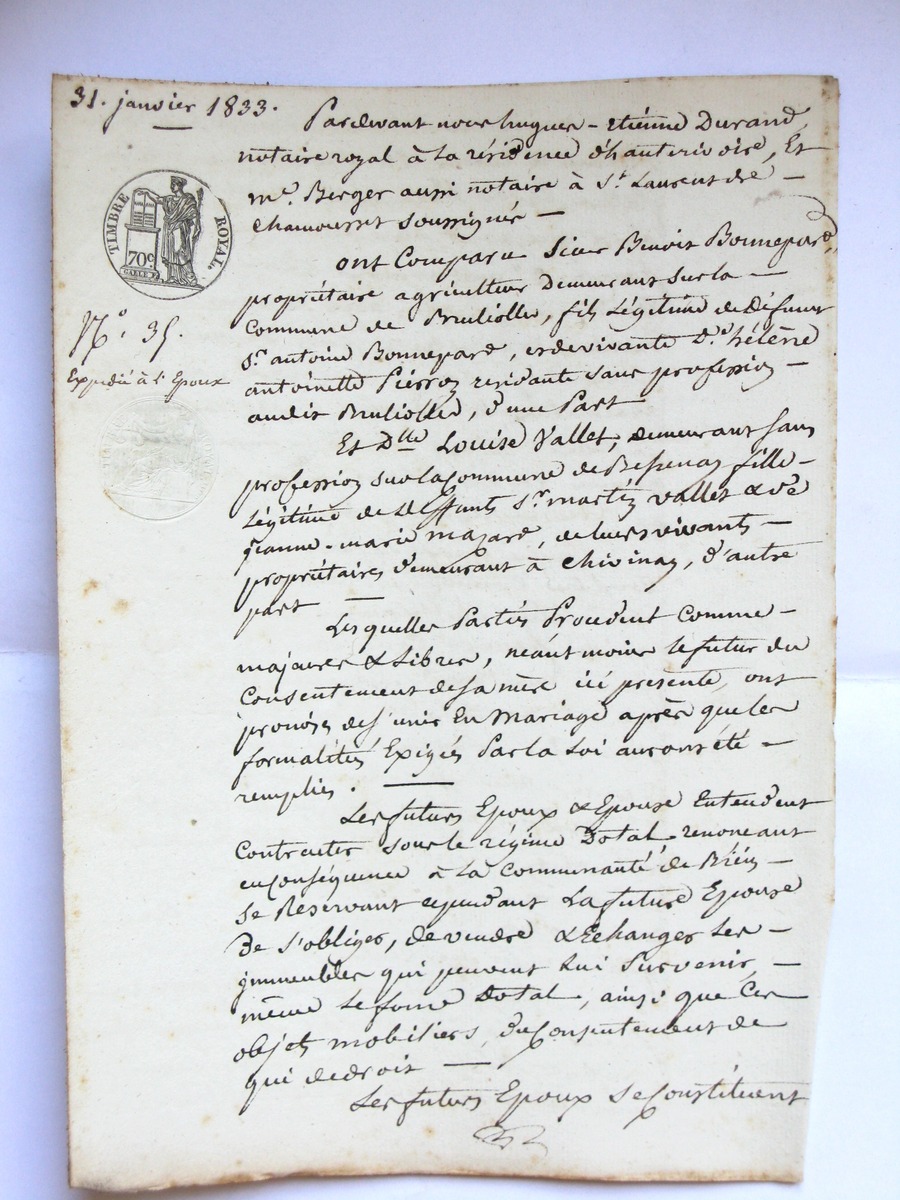 31. janvier 1833.
Pardevant nous hugues-etiénne Durand,
notaire royal à La résidence d'hauterivoire, Et
me. Berger aussi notaire à St. Laurent de
Chamousset soussignés —
ont Comparu Sieur Benoit Bonnepard,
propriétaire agriculteur Demeurant sur la —
Commune de Brullioles, fils Légitime de Défunt
Sr. antoine Bonnepard, et de vivante De. hélène
antoinette Pierron residante sans profession —
audit Brullioles, d'une Part
Et Dlle Louise Vallet, demeurant sans
profession sur la Commune de Bessenay fille-
Légitime de deffunts Sr. martin vallet & de
jeanne-marie mazard, de leurs vivants —
propriétaires demeurant à chivinay, d'autre
part —
Lesquelles Parties Procedent Comme —
majeures & Libres, néantmoins le futur du
Consentement de sa mère ici presente, ont
promis de s'unir En Mariage après que les
formalités Exigées Par la Loi auront été —
remplies. —
Les futurs Epoux & Epouse Entendent
Contracter sous le régime Dotal, renoncant
en conséquence à La Communauté de Biens —
Se Réservant cependant La future Epouse
De s'obliger, de vendre & Echanger Ses —
immeubles qui peuvent Lui Survenir, —
même Le fond Dotal, ainsi que Ses
objets mobiliers, du Consentement de
qui de droit —
Les futurs Epoux Se Constituent
TIMBRE ROYAL.
70c
No. 35.
Expedié à l'Epoux